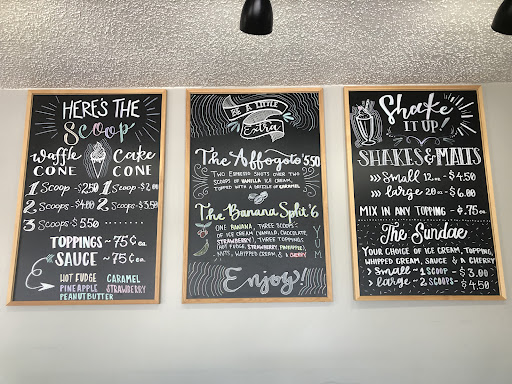 HERE'S THE
Scoop
Waffle CONE
Cake CONE
1 Scoop - $2.50 1 Scoop - $2.00
2 Scoops - $4.00 2 Scoops - $3.50
3 Scoops - $5.50
TOPPINGS ~ 75¢ ea.
SAUCE ~ 75¢ ea.
HOT FUDGE CARAMEL
PINEAPPLE STRAWBERRY
PEANUT BUTTER
BE A LITTLE
Extra
The Affogato $5.50
TWO ESPRESSO SHOTS OVER TWO
SCOOPS OF VANILLA ICE CREAM,
TOPPED WITH A DRIZZLE OF CARAMEL
The Banana Split $6
ONE BANANA, THREE SCOOPS
OF ICE CREAM (VANILLA, CHOCOLATE,
STRAWBERRY), THREE TOPPINGS
(HOT FUDGE, STRAWBERRY, PINEAPPLE)
NUTS, WHIPPED CREAM, & A CHERRY
Y
U
M
Enjoy!
Shake
IT UP!
SHAKES & MALTS
>>> Small 12 oz - $4.50
>>> large 20 oz - $6.00
MIX IN ANY TOPPING - $.75 ea.
The Sundae
YOUR CHOICE OF ICE CREAM, TOPPING,
WHIPPED CREAM, SAUCE & A CHERRY
> Small ~ 1 SCOOP - $3.00
> large ~ 2 SCOOPS - $4.50